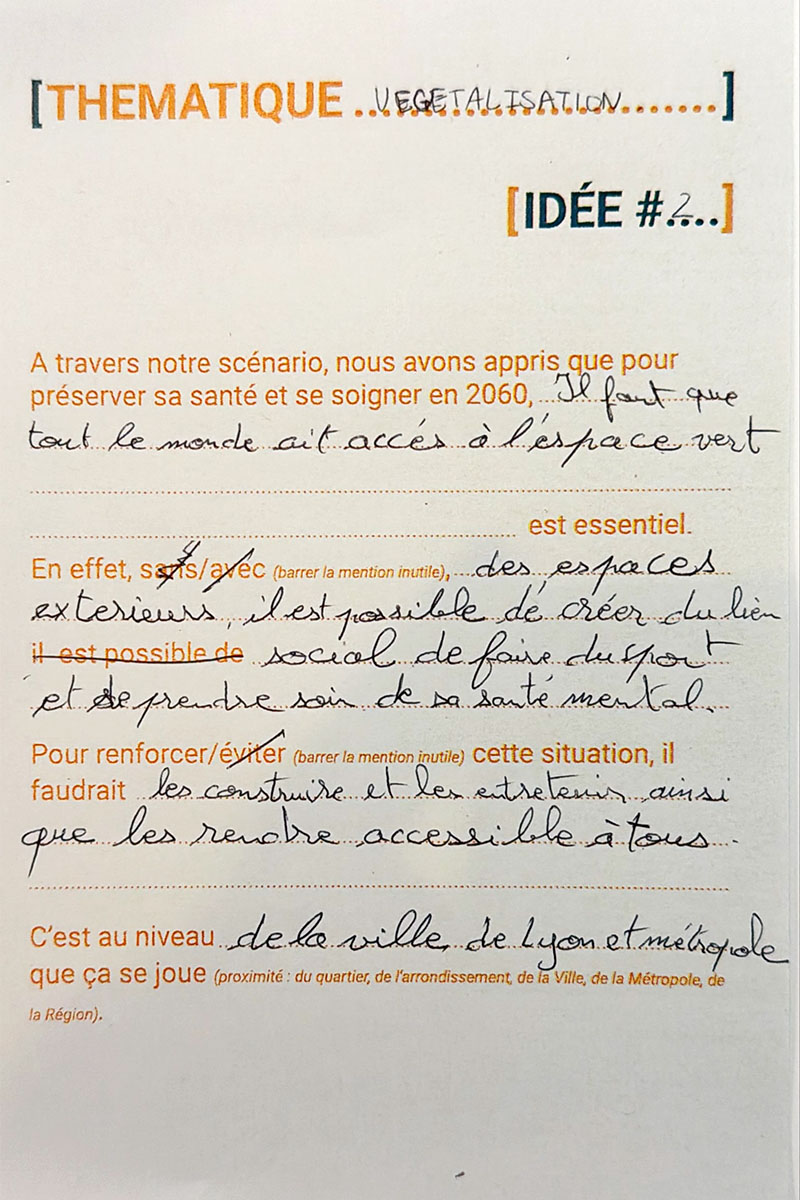 [THEMATIQUE ..VEGETALISATION.......]
[IDÉE #.2...]
A travers notre scénario, nous avons appris que pour
préserver sa santé et se soigner en 2060, Il faut que
tout le monde ait accés à l'éspace vert
est essentiel.
En effet, sans/avec (barrer la mention inutile), des espaces
exterieurs, il est possible de créer du lien
il est possible de social de faire du sport
et de prendre soin de sa santé mental.
Pour renforcer/éviter (barrer la mention inutile) cette situation, il
faudrait les construire et les entretenir ainsi
que les rendre accessible à tous.
C'est au niveau de la ville de Lyon et métropole
que ça se joue (proximité : du quartier, de l'arrondissement, de la Ville, de la Métropole, de
la Région).